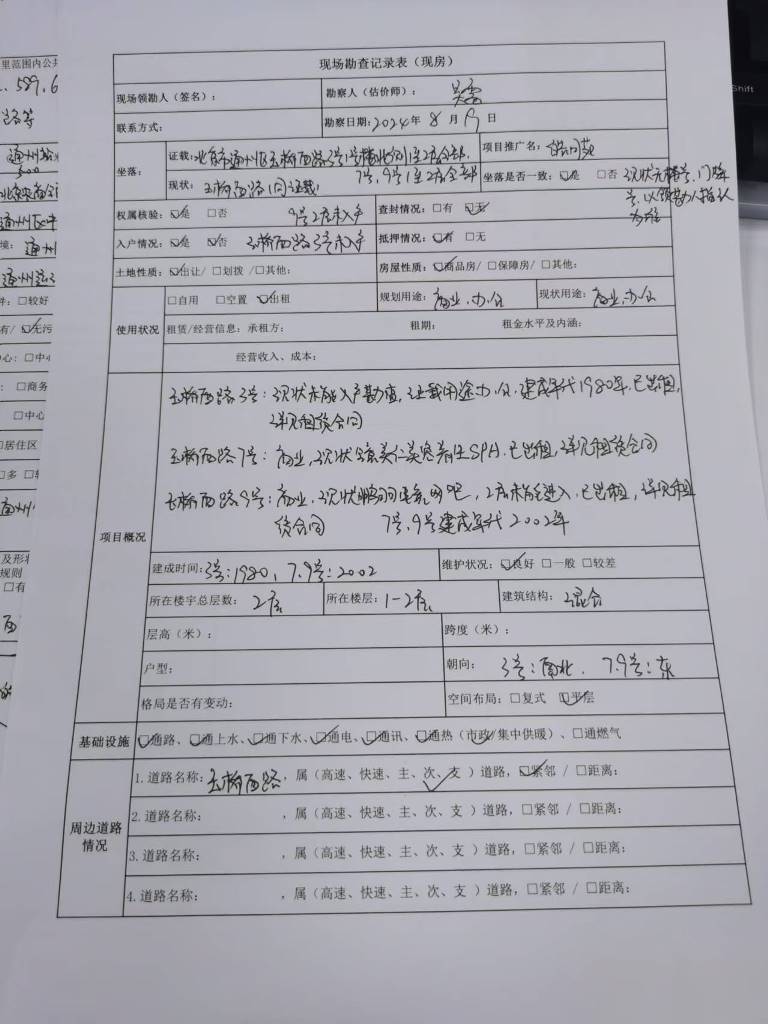 里范围内公共
589.6
路等
通州
通州
通州
件：□较好
有/☑无污
心：□中心
：□商务
□中心
□居住区
□多
及形状
规则
□有
Shift
现场勘查记录表（现房）
现场领勘人（签名）：
勘察人（估价师）：
联系方式：
勘察日期：2024年8月 日
坐落：
证载：北京市通州区玉桥西路3号1号楼北 1至2层全部
7号、9号1至2层全部
项目推广名：
现状：玉桥西路（同证载）
坐落是否一致：☑是 □否 现状无楼号、门牌
号，以领勘人指认
为准
权属核验：☑是 □否 9号2层未入户
查封情况：□有 ☑无
入户情况：☑是 ☑否 玉桥西路3号未入户
抵押情况：☑有 □无
土地性质：☑出让/□划拨/□其他：
房屋性质：☑商品房/□保障房/□其他：
使用状况
□自用 □空置 ☑出租
规划用途：商业、办公
现状用途：商业、办公
租赁/经营信息：承租方： 租期： 租金水平及内涵：
经营收入、成本：
项目概况
玉桥西路3号：现状未能入户勘查，证载用途办公，建成年代1980年，已出租，
详见租赁合同
玉桥西路7号：商业，现状 养生SPA，已出租，详见租赁合同
玉桥西路9号：商业，现状 网吧，2层未能进入，已出租，详见租
赁合同 7号、9号建成年代2002年
建成时间：3号：1980，7.9号：2002
维护状况：☑良好 □一般 □较差
所在楼宇总层数：2层
所在楼层：1-2层
建筑结构：混合
层高（米）：
跨度（米）：
户型：
朝向：3号：南北、7.9号：东
格局是否有变动：
空间布局：□复式 ☑平层
基础设施
☑通路、☑通上水、☑通下水、☑通电、☑通讯、☑通热（市政/集中供暖）、□通燃气
周边道路
情况
1.道路名称：玉桥西路，属（高速、快速、主、次、支）道路，☑紧邻/□距离：
2.道路名称： ，属（高速、快速、主、次、支）道路，□紧邻/□距离：
3.道路名称： ，属（高速、快速、主、次、支）道路，□紧邻/□距离：
4.道路名称： ，属（高速、快速、主、次、支）道路，□紧邻/□距离：